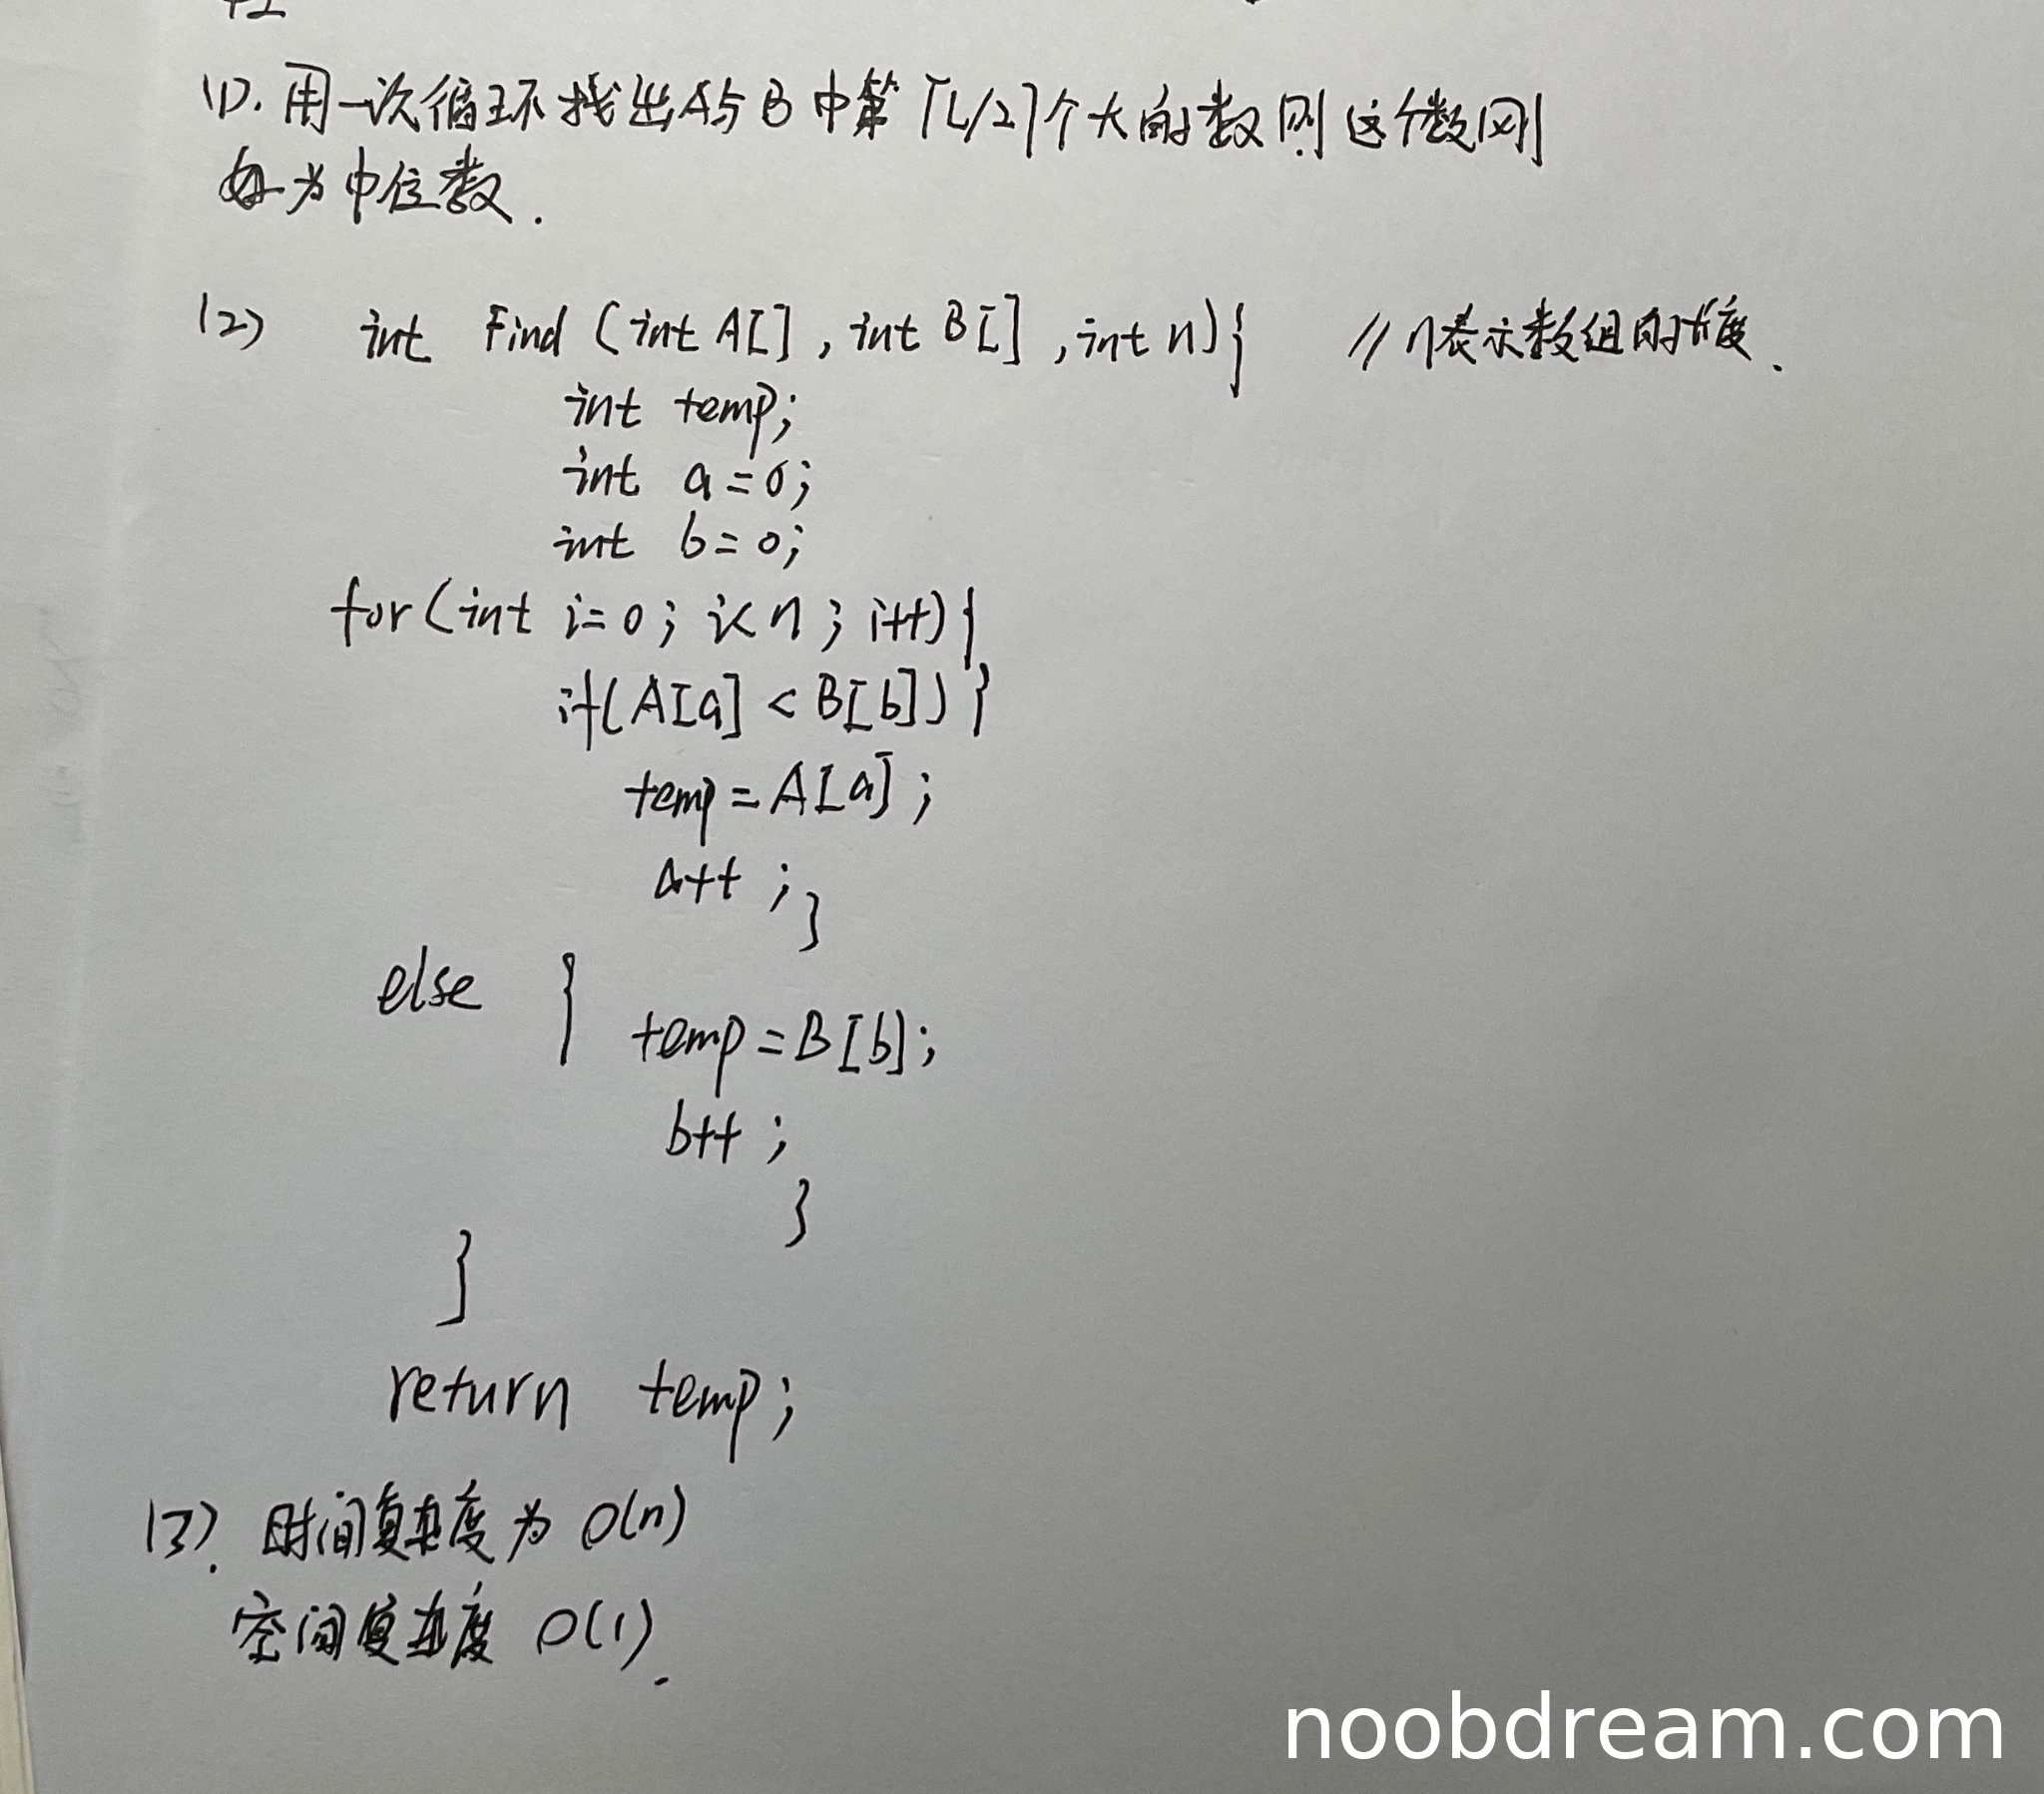 42
(1). 用一次循环找出A与B中第⌈L/2⌉个大的数则这个数刚
为中位数.
(2) int Find (int A[], int B[], int n){ //n表示数组的长度.
int temp;
int a=0;
int b=0;
for(int i=0; i<n; i++){
if(A[a] < B[b]) }
temp=A[a];
a++ ; }
else { temp=B[b];
b++ ;
}
}
return temp;
(3). 时间复杂度为 O(n)
空间复杂度 O(1).
noobdream.com